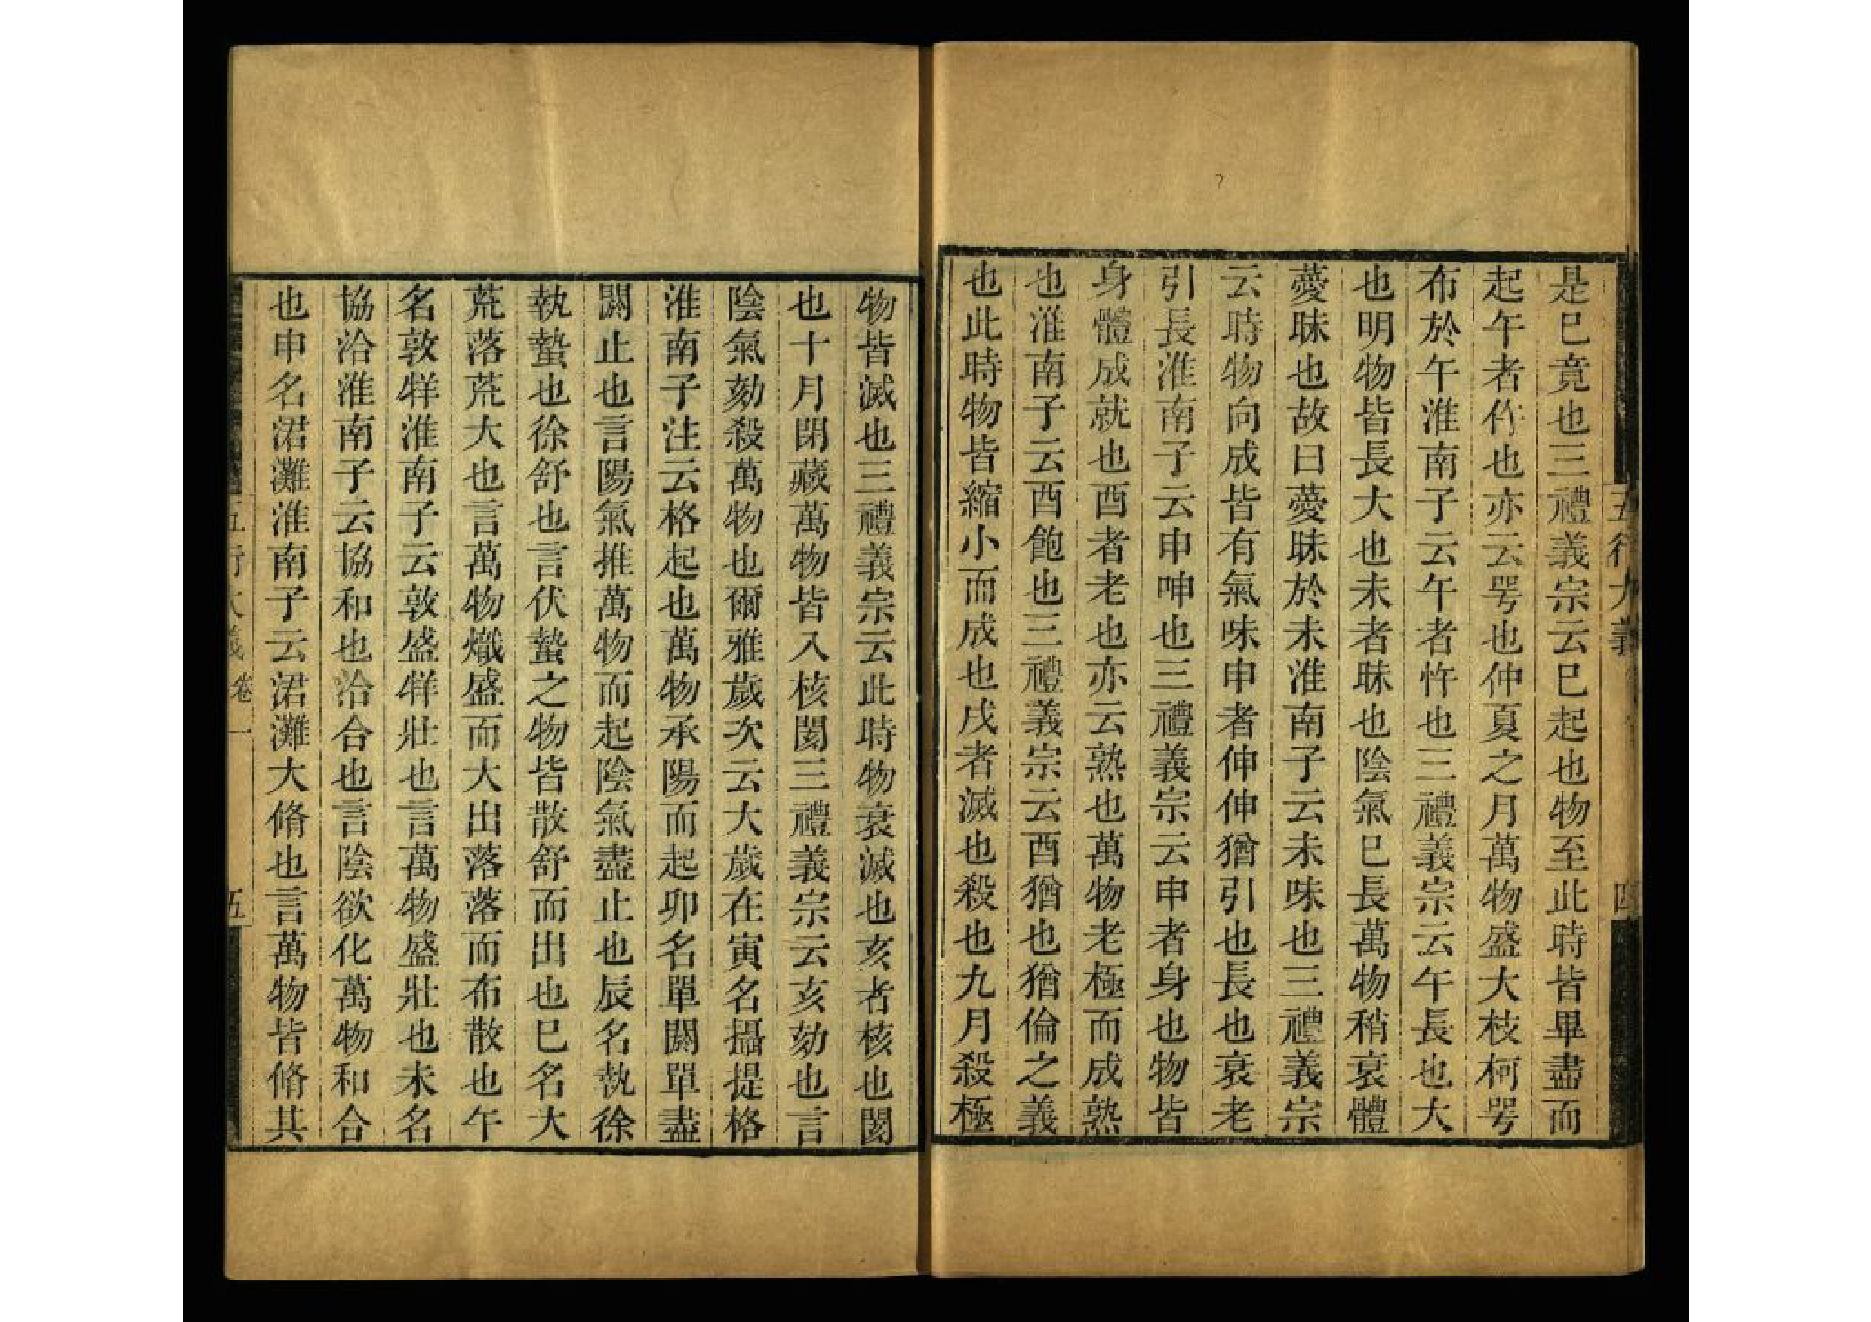 是巳竟也三禮義宗云巳起也物至此時皆畢盡而
起午者仵也亦云咢也仲夏之月萬物盛大枝柯咢
布於午淮南子云午者忤也三禮義宗云午長也大
也明物皆長大也未者昧也陰氣巳長萬物稍衰體
薆昧也故曰薆昧於未淮南子云未味也三禮義宗
云時物向成皆有氣味申者伸伸猶引也長也衰老
引長淮南子云申呻也三禮義宗云申者身也物皆
身體成就也酉者老也亦云熟也萬物老極而成熟
也淮南子云酉飽也三禮義宗云酉猶也猶倫之義
也此時物皆縮小而成也戌者滅也殺也九月殺極
五行大義
四
物皆滅也三禮義宗云此時物衰滅也亥者核也閡
也十月閉藏萬物皆入核閡三禮義宗云亥劾也言
陰氣劾殺萬物也爾雅歲次云大歲在寅名攝提格
淮南子注云格起也萬物承陽而起卯名單閼單盡
閼止也言陽氣推萬物而起陰氣盡止也辰名執徐
執蟄也徐舒也言伏蟄之物皆散舒而出也巳名大
荒落荒大也言萬物熾盛而大出落落而布散也午
名敦牂淮南子云敦盛牂壯也言萬物盛壯也未名
協洽淮南子云協和也洽合也言陰欲化萬物和合
也申名涒灘淮南子云涒灘大脩也言萬物皆脩其
五行大義 卷一
五